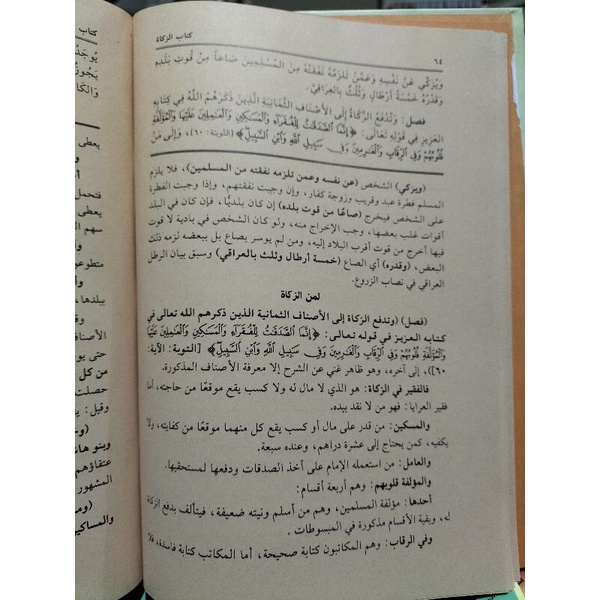 ٦٤
كتاب الزكاة
وَيُزَكِّي عَنْ نَفْسِهِ وَعَمَّنْ تَلْزَمُهُ نَفَقَتُهُ مِنَ الْمُسْلِمِينَ صَاعاً مِنْ قُوتِ بَلَدِهِ
وَقَدْرُهُ خَمْسَةُ أَرْطَالٍ وَثُلُثٌ بِالعِرَاقِيِّ.
فصل: وَتُدْفَعُ الزَّكَاةُ إِلَى الأَصْنَافِ الثَّمَانِيَةِ الَّذِينَ ذَكَرَهُمُ اللَّهُ فِي كِتَابِهِ
العَزِيزِ فِي قَوْلِهِ تَعَالَى: ﴿إِنَّمَا الصَّدَقَتُ لِلْفُقَرَآءِ وَالْمَسَكِينِ وَالْعَمِلِينَ عَلَيْهَا وَالْمُؤَلَّفَةِ
قُلُوبُهُمْ وَفِي الرِّقَابِ وَالْغَرِمِينَ وَفِي سَبِيلِ اللَّهِ وَابْنِ السَّبِيلِ﴾ [التوبة: ٦٠]، وَإِلَى مَنْ
(ويزكي) الشخص (عن نفسه وعمن تلزمه نفقته من المسلمين)، فلا يلزم
المسلم فطرة عبد وقريب وزوجة كفار، وإن وجبت نفقتهم، وإذا وجبت الفطرة
على الشخص فيخرج (صاعًا من قوت بلده) إن كان بلديًّا، فإن كان في البلد
أقوات غلب بعضها، وجب الإخراج منه، ولو كان الشخص في بادية لا قوت
فيها أخرج من قوت أقرب البلاد إليه، ومن لم يوسر بصاع بل ببعضه لزمه ذلك
البعض، (وقدره) أي الصاع (خمسة أرطال وثلث بالعراقي) وسبق بيان الرطل
العراقي في نصاب الزروع.
لمن الزكاة
(فصل) (وتدفع الزكاة إلى الأصناف الثمانية الذين ذكرهم الله تعالى في
كتابه العزيز في قوله تعالى: ﴿إِنَّمَا الصَّدَقَتُ لِلْفُقَرَآءِ وَالْمَسَكِينِ وَالْعَمِلِينَ عَلَيْهَا
وَالْمُؤَلَّفَةِ قُلُوبُهُمْ وَفِي الرِّقَابِ وَالْغَرِمِينَ وَفِي سَبِيلِ اللَّهِ وَابْنِ السَّبِيلِ﴾ [التوبة: الآية:
٦٠])، إلى آخره، وهو ظاهر غني عن الشرح إلا معرفة الأصناف المذكورة.
فالفقير في الزكاة: هو الذي لا مال له ولا كسب يقع موقعًا من حاجته، أما
فقير العرايا: فهو من لا نقد بيده.
والمسكين: من قدر على مال أو كسب يقع كل منهما موقعًا من كفايته، ولا
يكفيه، كمن يحتاج إلى عشرة دراهم، وعنده سبعة.
والعامل: من استعمله الإمام على أخذ الصدقات ودفعها لمستحقيها.
والمؤلفة قلوبهم: وهم أربعة أقسام:
أحدها: مؤلفة المسلمين، وهم من أسلم ونيته ضعيفة، فيتألف بدفع الزكاة
له، وبقية الأقسام مذكورة في المبسوطات.
وفي الرقاب: وهم المكاتبون كتابة صحيحة، أما المكاتب كتابة فاسدة، فلا
كتاب
يعطى
فتحمل
يعطى
سهم ال
متطوعو
ببلدها،
الأصناف
حتى يو
من كل
حصلت
وقيل:
وبنو ها
عتقاؤهم
المشهور
(وم
والمساكين